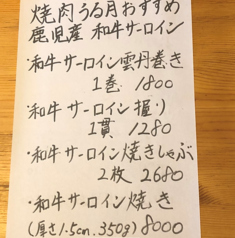 焼肉うる月おすすめ
鹿児産 和牛サーロイン
・和牛サーロイン雲丹巻き
1巻 1800
・和牛サーロイン握り
1貫 1280
・和牛サーロイン焼きしゃぶ
2枚 2680
・和牛サーロイン焼き
(厚さ1.5cm.350g) 8000